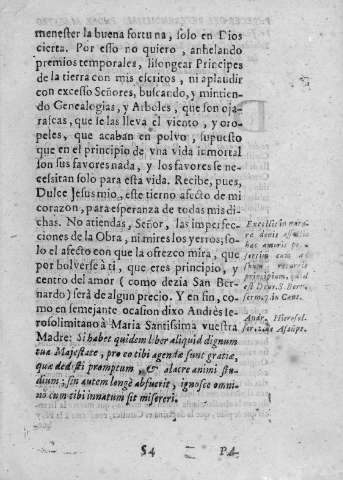 menester la buena fortuna, solo en Dios
cierta. Por esso no quiero, anhelando
premios temporales, lisongear Principes
de la tierra con mis escritos, ni aplaudir
con excesso Señores, buscando, y mintien
do Genealogias, y Arboles, que son oja-
rascas, que se las lleva el viento, y oro-
peles, que acaban en polvo, supuesto
que en el principio de vna vida inmortal
son sus favores nada, y los favores se ne-
cessitan solo para esta vida. Recibe, pues,
Dulce Jesus mio, este tierno afecto de mi
corazon, para esperanza de todas mis di-
chas. No atiendas, Señor, las imperfec-
ciones de la Obra, ni mires los yerros; so-
lo el afecto con que la ofrezco mira, que
por bolverse à ti, que eres principio, y
centro del amor (como dezia San Ber-
nardo) será de algun precio. Y en fin, co-
mo en semejante ocasion dixo Andrès Ie-
rosolimitano à Maria Santissima vuestra
Madre: Si habet quidem liber aliquid dignum
tua Majestate, pro eo tibi agendæ sunt gratiæ,
quæ dedisti promptum, & alacre animi stu-
dium; sin autem longè abfuerit, ignosce omni-
nò cum tibi innatum sit misereri.
re denis
bas amoris
sertim cum
suum recurris
principium, quod
est Deus. S. Bern.
serm. in Cant.
Andr. Hierosol.
ser. 2. de Assūpt.
S4
PA-